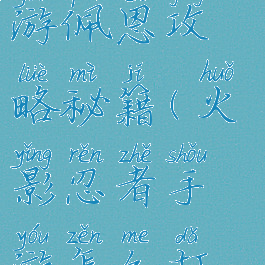 游佩恩攻
lüè mì jí huǒ
略秘籍(火
yǐng rěn zhě shǒu
影忍者手
yóu zěn me dǎ
游怎么打